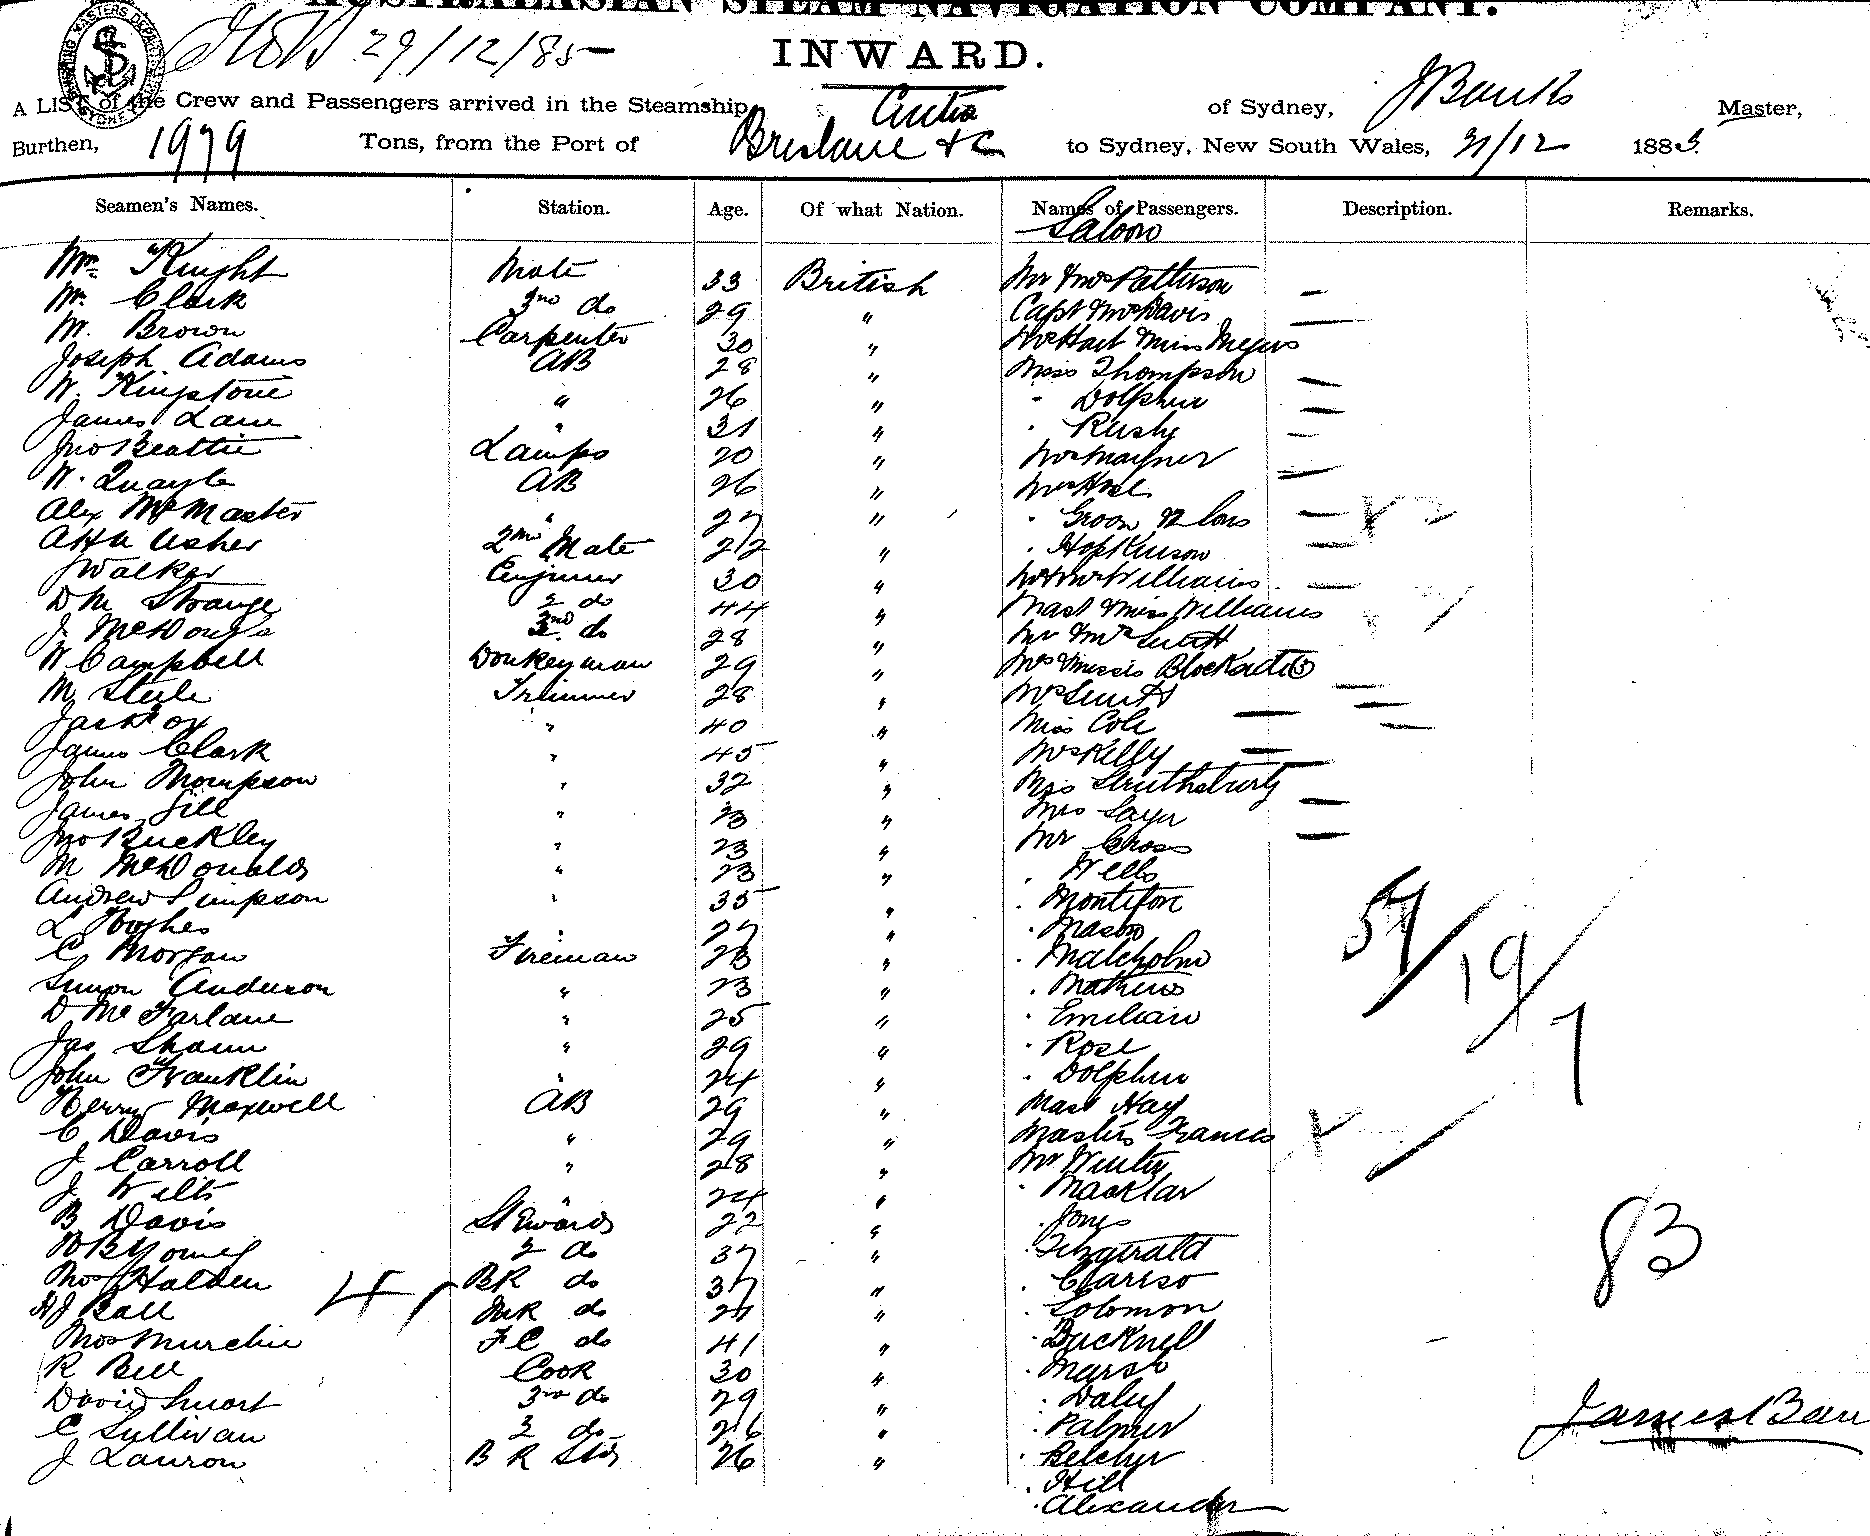 AUSTRALASIAN STEAM NAVIGATION COMPANY.
29/12/85
INWARD.
A LIST of the Crew and Passengers arrived in the Steamship of Sydney, J Banks Master,
Burthen, 1979 Tons, from the Port of Brisbane &c to Sydney, New South Wales, 31/12 1885
Seamen's Names. Station. Age. Of what Nation. Names of Passengers. Description. Remarks.
Saloon
Knight Mate 33 British Mr & Mrs Patterson
Mr. Clark 3rd do 29 " Capt & Mrs Davis
W. Brown Carpenter 30 " Mrs Hart & Miss Meyers
Joseph Adams AB 28 " Miss Thompson
W. Kingstone " 26 " " Dolphin
James Lane " 31 " "
Jno Beattie Lamps 20 "
W. Quayle AB 26 "
Alex McMaster " 27 " "
Usher 2nd Mate 22 " " Hopkinson
J Walker Engineer 30 " Mr & Mrs Williams
D M Strange 2 do 44 " Mast & Miss Williams
J. 3rd do 28 " Mr & Mrs Smith
W Campbell Donkeyman 29 " Mrs & Misses
M Steele Trimmer 28 " Mrs Smith
" 40 " Miss Cole
James Clark " 45 " Mrs Kelly
John Thompson " 32 " Mrs
James Gill " 23 " Mrs Sayer
Jno Buckley " 23 " Mr Cross
M McDonalds " 23 " " Wells
Andrew Simpson " 35 " " Montifore
L Hughes " 27 " " Mason
C Morgan Fireman 23 " " Malcholm
Simon Anderson " 23 " " Mathews
D McFarlane " 25 " "
Jas Shann " 29 " " Rose
John Franklin " 24 " " Dolphin
Henry Maxwell AB 29 " Mast Hay
C Davis " 29 " Masters Francis
J Carroll " 28 " Mr Winter
J Wilts " 24 " "
B Davis Stewards 22 " " Jones
Young 2 do 37 " " Fitzgerald
Thos Halden BR do 37 "
Ball do " " Solomon
Thos Murchie FC do 41 " " Bucknell
R Bell Cook 30 " "
David Smart 3rd do 29 " " Daly
C Sullivan 2 do 26 " " Palmer
J Lawson B R Stds 26 " " Belcher
" Hill
" Alexander
57/19/1
83
James Ban